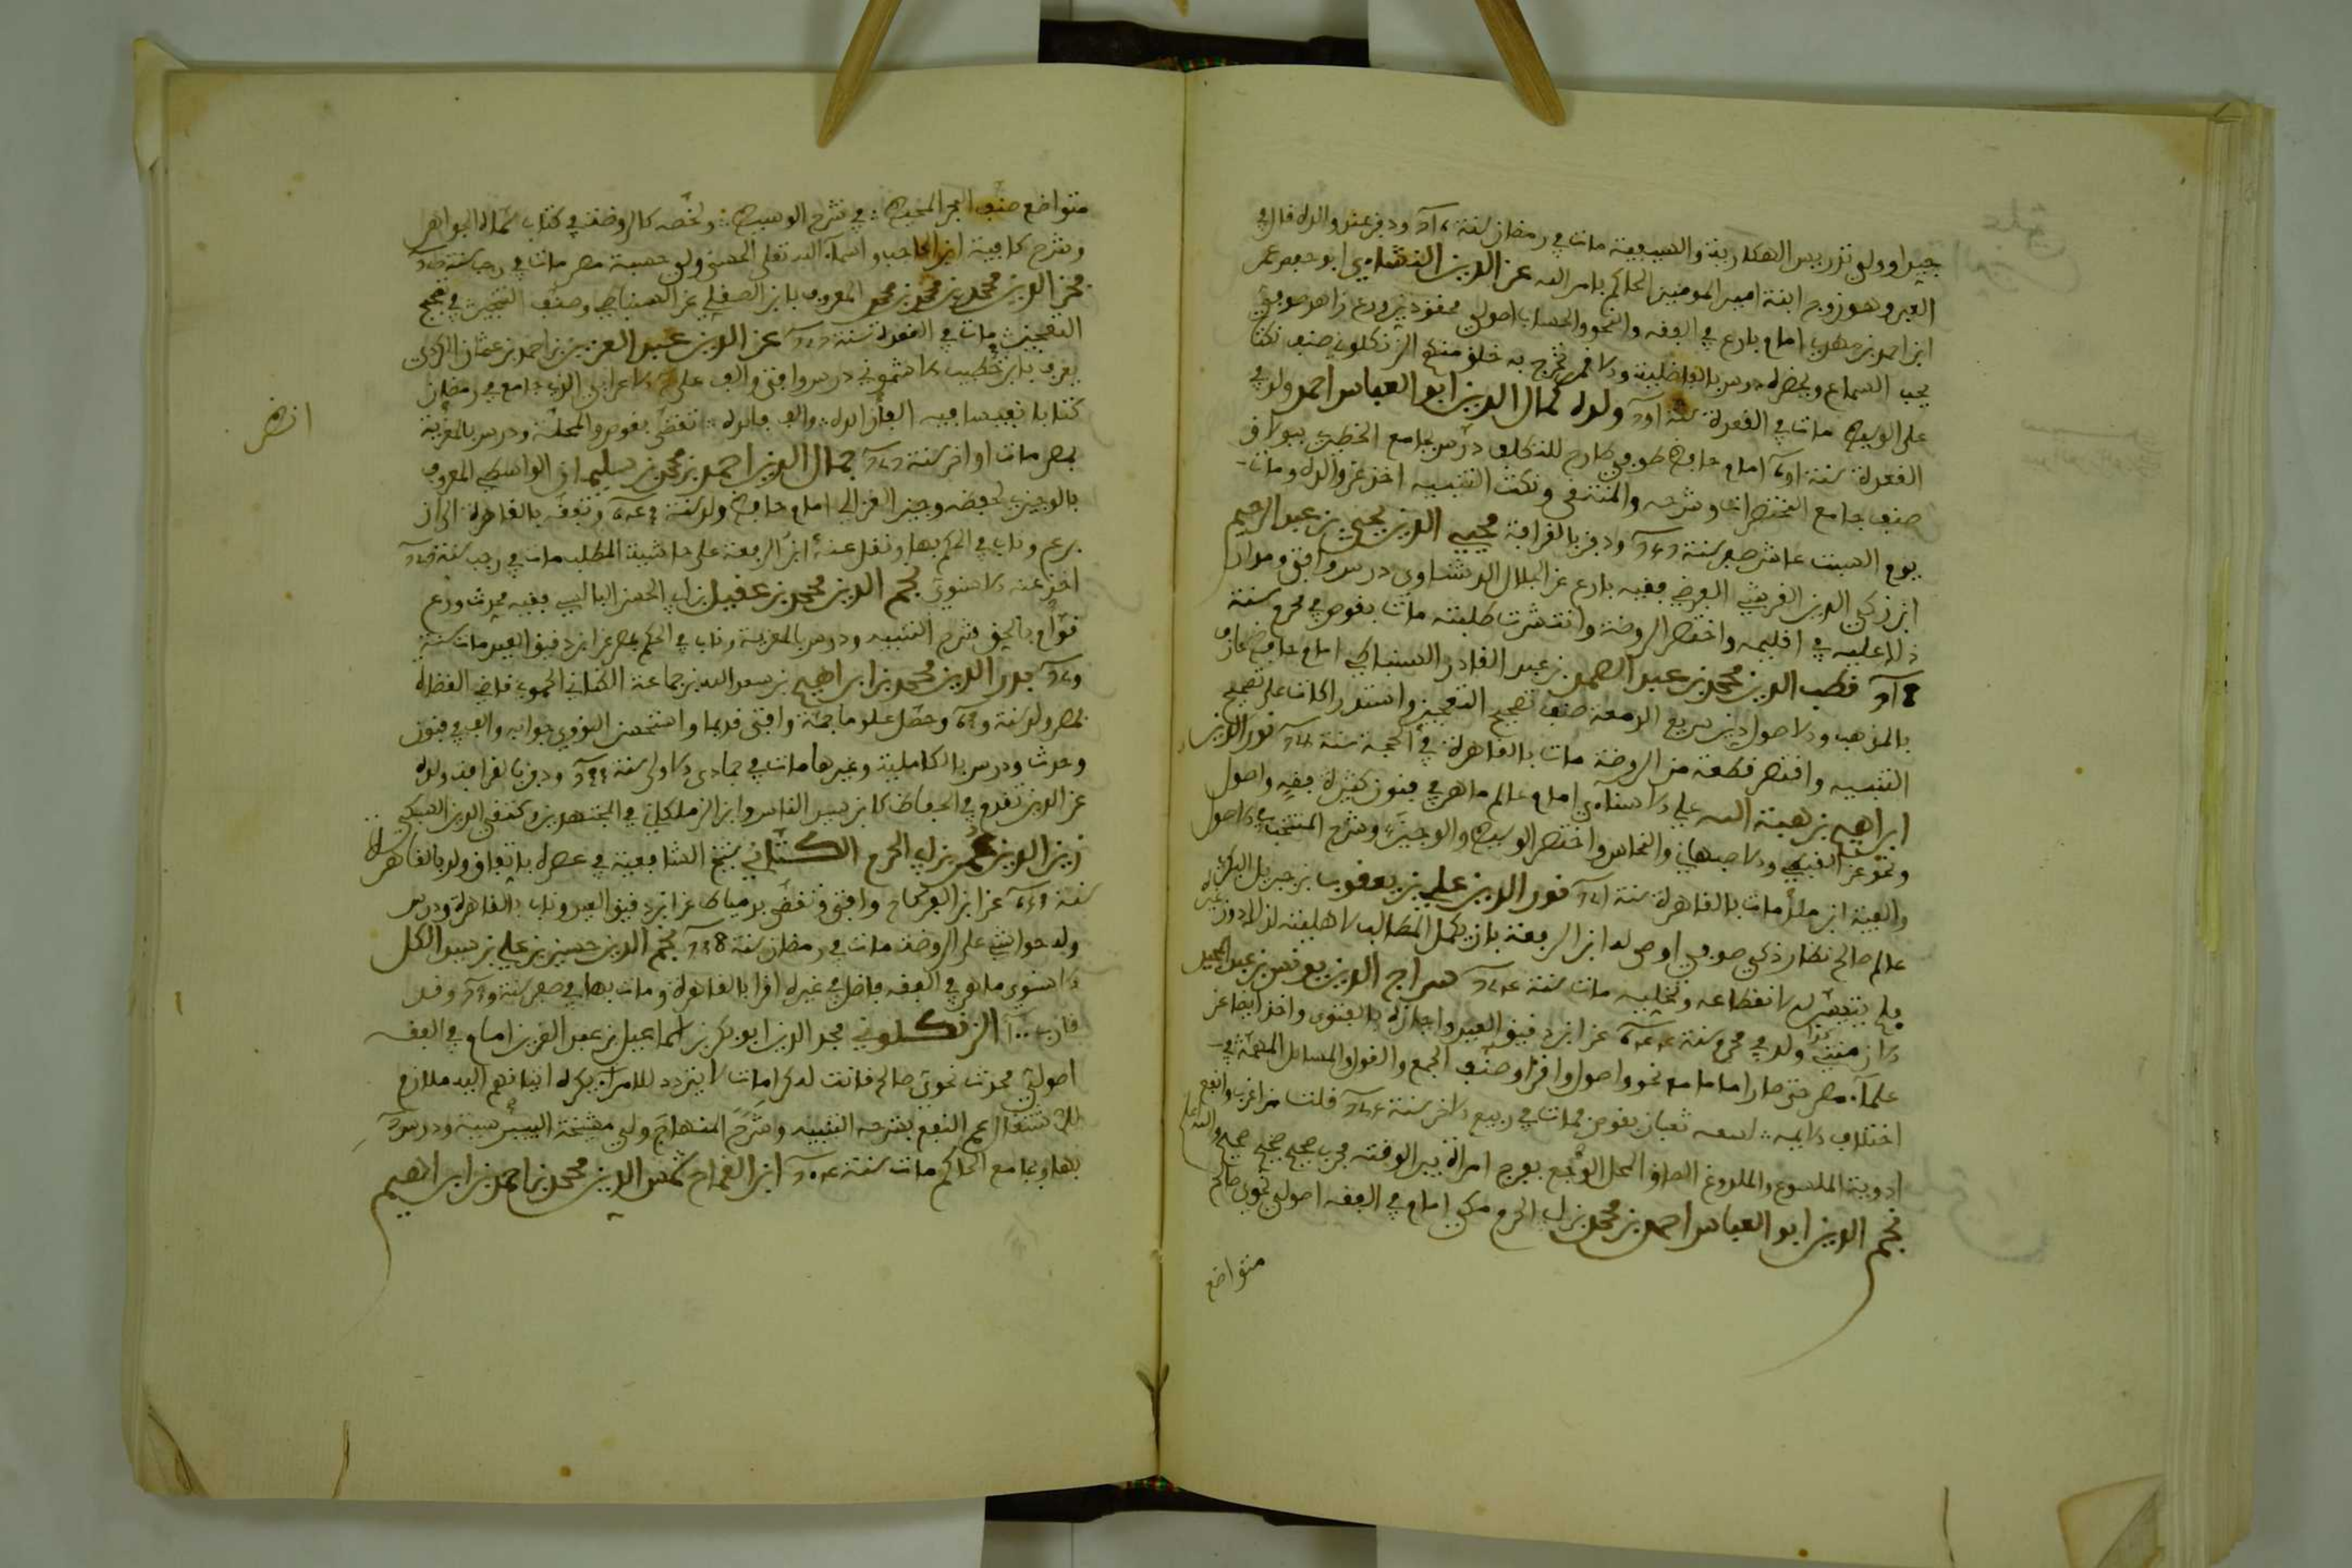 جيدا وولي تدريس الهكارية والسيبية مات في رمضان سنة ودفن عند والده قال في
العبر وهو زوج ابنة امير المومنين الحاكم بامر الله عز الدين النشاءي ابو حفص عمر
ابن احمد بن مهدي امام بارع في الفقه والنحو والحساب اصولي محقق دين ورع زاهد صوفي
يحب السماع ويحضره درس بالفاضلية والاقمر تخرج به خلق منهم الزنكلوني صنف نكتا
على الوسيط مات في القعدة سنة ولده كمال الدين ابو العباس احمد ولد في
القعدة سنة امام حافظ صوفي طارح للتكلف درس بجامع الخطيري ببولاق
صنف جامع المختصرات وشرحه والمنتقى ونكت التنبيه اخذ عن والده ومات
يوم السبت عاشر صفر سنة ودفن بالقرافة محيي الدين يحيى بن عبد الرحيم
ابن زكي الدين القريشي القوصي فقيه بارع عن الجلال الدشناوي درس وافتى ومدار
ذلك عليه في اقليمه واختصر الروضة وانتشرت طلبته مات بقوص في محرم سنة
قطب الدين محمد بن عبد الصمد بن عبد القادر السنباطي امام حافظ عارف
بالمذهب والاصول دين سريع الدمعة صنف تصحيح التعجيز واستدراكات على تصحيح
التنبيه واختصر قطعة من الروضة مات بالقاهرة في الحجة سنة نور الدين
ابراهيم بن هبة الله علي الاسناءي امام عالم ماهر في فنون كثيرة فقه واصول
ونحو عن القفطي والاصبهاني والنحاس واختصر الوسيط والوجيز وشرح المنتخب في الاصول
والفية ابن ملك مات بالقاهرة سنة نور الدين علي بن يعقوب بن جبريل البكري
عالم صالح نظار ذكي صوفي اوصى له ابن الرفعة بان يكمل المطالب لاهليته لذلك دون غيره
فلم يتيسر له لانقطاعه وتخليه مات سنة سراج الدين يونس بن عبد المجيد
الارمنتي ولد في محرم سنة عن ابن دقيق العيد واجازه بالفتوى واخذ ايضا عن
علماء مصر حتى صار اماما مع نحو واصول واقرا وصنف الجمع والفرق والمسائل المهمة في
اختلاف الايمة لسعه ثعبان بقوص فمات في ربيع الاخر سنة قلت من اغرب وانفع
ادوية الملسوع والملدوغ الصاق المحل الوجع بفرج امراة بير الوقته مجرب صحيح صحيح صحيح والله اعلم
نجم الدين ابو العباس احمد بن محمد بن ابي الحرم مكي امام في الفقه اصولي نحوي صالح
متواضع
متواضع صنف البحر المحيط في شرح الوسيط ولخصه كالروضة في كتاب سماه الجواهر
وشرح كافية ابن الحاجب واسماء الله تعلى الحسنى وولي حسبة مصر مات في رجب سنة
فخر الدين محمد بن محمد بن محمد المعروف بابن الصقلي عن السنباطي وصنف التنجيز في تصحيح
التعجيز مات في القعدة سنة عز الدين عبد العزيز بن احمد بن عثمان الكردي
يعرف بابن خطيب الاشموني درس وافتى والف على الاعرابي الذي جامع في رمضان
كتابا نفيسا فيه الف الده والف فائدة تقضى بقوص والمحلة ودرس بالمعزية
بمصر مات اواخر سنة جمال الدين احمد بن محمد بن سليمان الواسطي المعروف
بالوجيزي لحفظه وجيز الغزالي امام حافظ ولد سنة وتفقه بالقاهرة الى ان
برع وناب في الحكم بها ونقل عنه ابن الرفعة على حاشية المطلب مات في رجب سنة
اخذ عنه الاسنوي نجم الدين محمد بن عقيل بن ابي الحسن البالسي فقيه محدث ورع
قوام بالحق شرح التنبيه ودرس بالمعزية وناب في الحكم بمصر عن ابن دقيق العيد مات سنة
بدر الدين محمد بن ابراهيم بن سعد الله بن جماعة الكناني الحموي قاضي القضاة
بمصر ولد سنة وحصل علوما جمة وافتى قديما واستحسن النووي جوابه والف في فنون
وحدث ودرس بالكاملية وغيرها مات في جمادى الاولى سنة ودفن بالقرافة ولده
عز الدين تقدم في الحفاظ كابن سيد الناس وابن الزملكاني في المجتهدين وكتقي الدين السبكي
زين الدين عمر بن ابي الحرم الكتناني شيخ الشافعية في عصره باتفاق ولد بالقاهرة
سنة عن ابن الفركاح وافتى وتقضى بدمياط عن ابن دقيق العيد وناب بالقاهرة ودرس
وله حواشي على الروضة مات في رمضان سنة نجم الدين حسين بن علي بن سيد الكل
الاسنوي ماهر في الفقه فاضل في غيره اقرا بالقاهرة ومات بها في صفر سنة وقد
قارب الزنكلوني مجد الدين ابو بكر بن اسماعيل بن عبد العزيز امام في الفقه
اصولي محدث نحوي صالح قانت له كرامات لا يتردد للامراء يكره اتيانهم اليه ملازم
للاشتغال عم النفع بشرحه التنبيه وشرح المنهاج ولي مشيخة البيبرسية ودرس
بها وبجامع الحاكم مات سنة ابن القماح شمس الدين محمد بن احمد بن ابراهيم
انظر